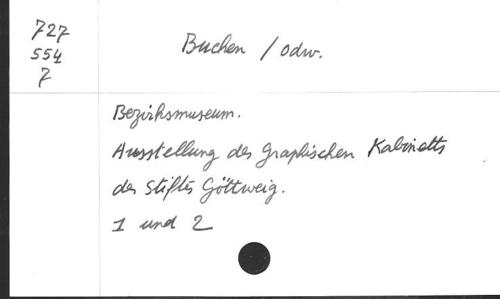 727
554
7
Buchen / Odw.
Bezirksmuseum.
Ausstellung des Graphischen Kabinetts
des Stiftes Göttweig.
1 und 2